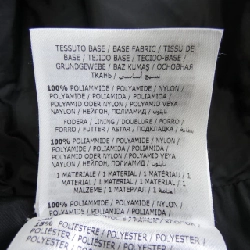 TESSUTO BASE / BASE FABRIC / TISSU DE
BASE / TEJIDO BASE / TECIDO-BASE /
GRUNDGEWEBE / BAZ KUMAŞ / ОСНОВНАЯ
ТКАНЬ /
100% POLIAMMIDE / POLYAMIDE / NYLON /
POLYAMIDE / POLIAMIDA / POLIAMIDA /
POLYAMID ODER NYLON / POLYAMID VEYA
NAYLON / НЕЙЛОН, ПОЛИАМИД /
FODERA / LINING / DOUBLURE / FORRO /
FORRO / FUTTER / ASTAR / ПОДКЛАДКА /
100% POLIAMMIDE / POLYAMIDE / NYLON /
POLYAMIDE / POLIAMIDA / POLIAMIDA /
POLYAMID ODER NYLON / POLYAMID VEYA
NAYLON / НЕЙЛОН, ПОЛИАМИД /
1 MATERIALE / 1 MATERIAL / 1 MATERIAL
/ 1 MATERIAL / 1 MATERIAL / 1 MATERIAL /
1 MALZEME / 1 МАТЕРИАЛ /
100% POLIAMMIDE / POLYAMIDE / NYLON /
POLIESTERE / POLYESTER /
POLYESTER / POLIÉSTER /
POLYESTER / POLYESTER